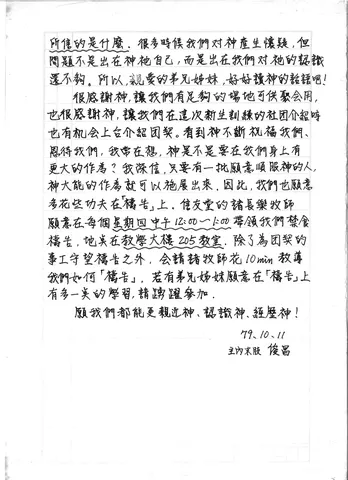 所信的是什麼．很多時候我們對神產生懷疑，但
問題不是出在神祂自己，而是出在我們對祂的認識
還不夠。所以，親愛的弟兄姊妹，好好讀神的話語吧！
很感謝神，讓我們有足夠的場地可供聚會用，
也很感謝神，讓我們在這次新生訓練的社團介紹時
也有機會上台介紹團契。看到神不斷祝福我們、
恩待我們，我常在想，神是不是要在我們身上有
更大的作為？我深信，只要有一批願意順服神的人，
神大能的作為就可以施展出來．因此，我們也願意
多花些功夫在「禱告」上．信友堂的諸長樂牧師
願意在每個星期四中午12:00～1:00帶領我們禁食
禱告，地點在教學大樓205教室．除了為團契的
事工守望禱告之外，會請諸牧師花10min教導
我們如何「禱告」．若有弟兄姊妹願意在「禱告」上
有多一點的學習，請踴躍參加．
願我們都能更親近神、認識神、經歷神！
79.10.11
主內末肢 俊昌